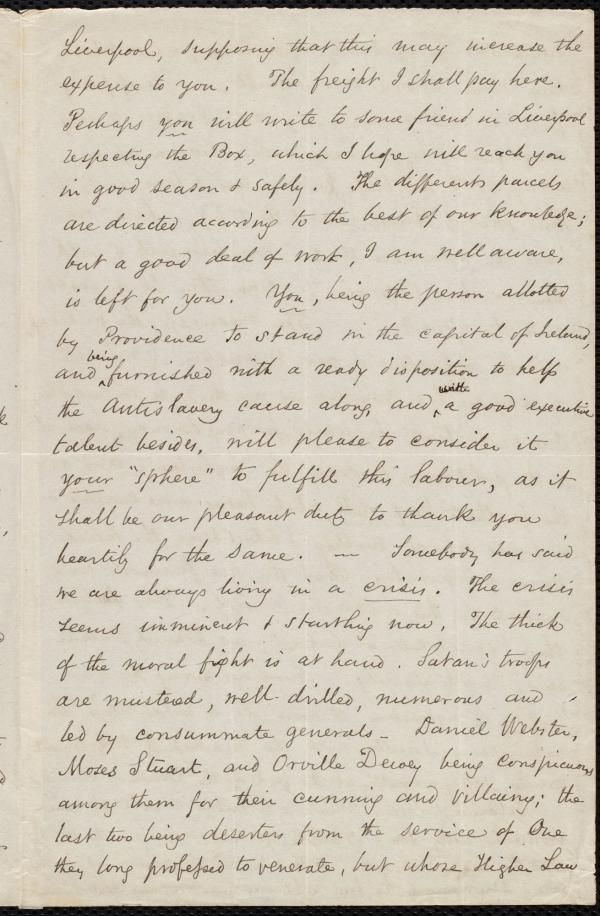 Liverpool, supposing that this may increase the
expense to you. The freight I shall pay here.
Perhaps you will write to some friend in Liverpool
respecting the Box, which I hope will reach you
in good season & safely. The different parcels
are directed according to the best of our knowledge;
but a good deal of work, I am well aware,
is left for you. You, being the person allotted
by Providence to stand in the capital of Ireland,
and being furnished with a ready disposition to help
the Antislavery cause along, and with a good executive
talent besides, will please to consider it
your "sphere" to fulfill this labour, as it
shall be our pleasant duty to thank you
heartily for the same. — Somebody has said
we are always living in a crisis. The crisis
seems imminent & startling now. The thick
of the moral fight is at hand. Satan's troops
are mustered, well-drilled, numerous and
led by consummate generals - Daniel Webster,
Moses Stuart, and Orville Dewey being conspicuous
among them for their cunning and villainy; the
last two being deserters from the service of One
they long professed to venerate, but whose Higher Law